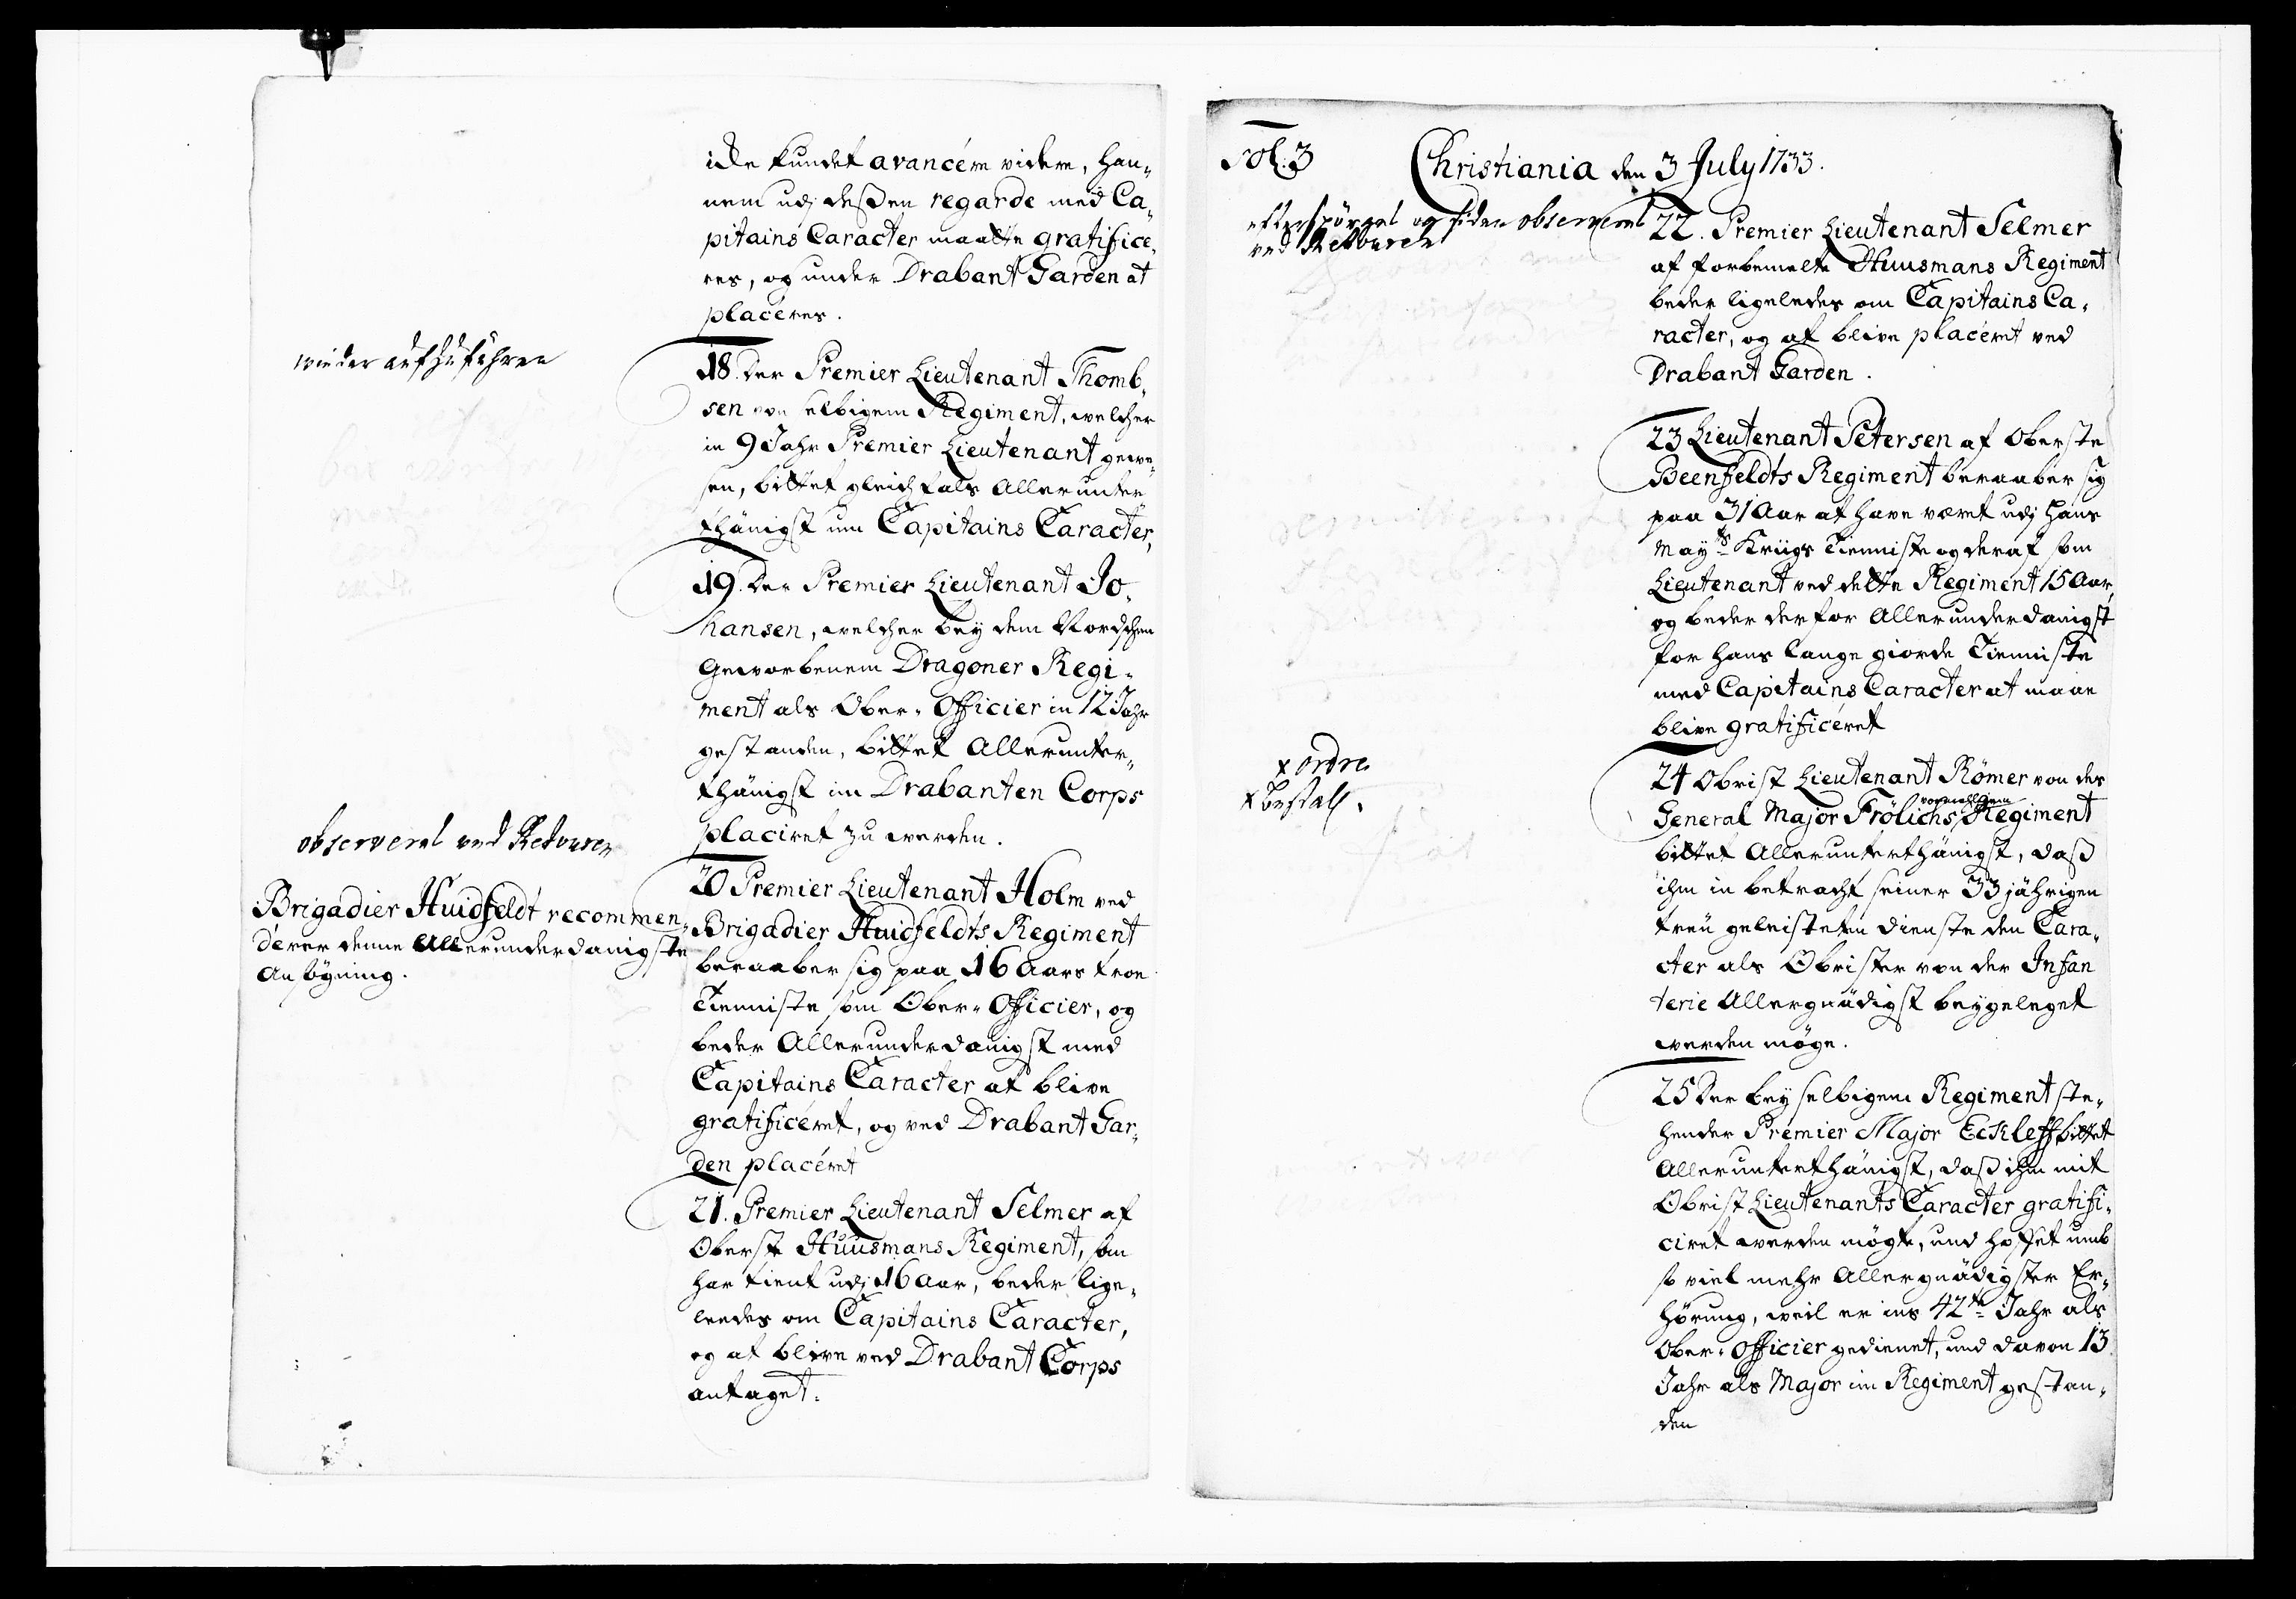 icke kundet avancére videre, han-
nem udj deßen regarde med Ca-
pitains Caracter maatte gratifice-
res, og under Drabant Garden at
placéres.
wieder aufzuführen
18. Der Premier Lieutenant Thomb-
sen von selbigem Regiment, welcher
in 9 Jahr Premier Lieutenant gewe-
sen, bittet gleichfals Allerunter
thänigst um Capitains Caracter,
19. Der Premier Lieutenant Jo-
hansen, welcher bey dem Nordschen
Geworbenem Dragoner Regi-
ment als Ober-Officier in 12 Jahr
gestanden, bittet Allerunter-
thänigst im Drabanten Corps
placiret zu werden.
observeret ved Retouren
20 Premier Lieutenant Holm ved
Brigadier Huidfeldts Regiment
beraaber sig paa 16 Aars troe
Tienniste som Ober-Officier, og
beder Allerunderdanigst med
Capitains Caracter at blive
gratificéret, og ved Drabant Gar-
den placéret
Brigadier Huidfeldt recommen-
dérer denne Allerunderdanigste
Ansøgning.
21. Premier Lieutenant Selmer af
Oberst Huusmans Regiment, som
har tient udj 16 Aar, beder lige-
leedes om Capitains Caracter,
og at blive ved Drabant Corps
antaget.
Fol. 3
Christiania den 3 July 1733.
efterspørget og siden observeret
ved Retouren
22. Premier Lieutenant Selmer
af forbemelte Huusmans Regiment
beder ligeledes om Capitains Ca-
racter, og at blive placéret ved
Drabant Garden.
23 Lieutenant Petersen af Oberste
Beenfeldts Regiment beraaber sig
paa 31 Aar at have været udj Hans
Mayts Kriigs Tienniste og deraf som
Lieutenant ved dette Regiment 15 Aar,
og beder derfor Allerunderdanigst
for hans lange giorde Tienniste
med Capitains Caracter at maae
blive gratificéret
x ordre
x bestall.
24 Obrist Lieutenant Römer von des
General Major Frölichs vormahligem Regiment
bittet Allerunterthänigst, daß
ihm in betracht seiner 33 jährigen
treu geleisteten Dienste den Cara-
cter als Obrister von der Infan
terie Allergnädigst beygeleget
werden möge.
25 Der bey selbigem Regiment ste-
hender Premier Major Eckleff bittet
Allerunterthänigst, daß ihm mit
Obrist Lieutenants Caracter gratifi-
ciret werden mögte, und hoffet umb
so viel mehr Allergnädigster Er-
hörung, weil er ins 42te Jahr als
Ober-Officier gedienet, und davon 13
Jahr als Major im Regiment gestan-
den